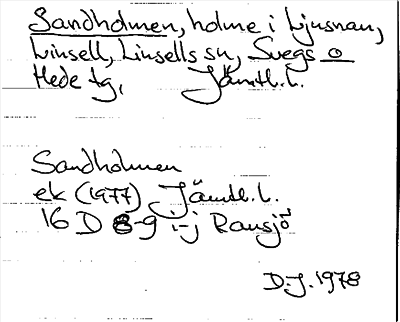 Sandholmen, holme i Ljusnan,
Linsell, Linsells sn, Svegs o
Hede tg, Jämtl.l.
Sandholmen
ek (1977) Jämtl.l.
16 D 8-9 i-j Ransjö
D.J. 1978